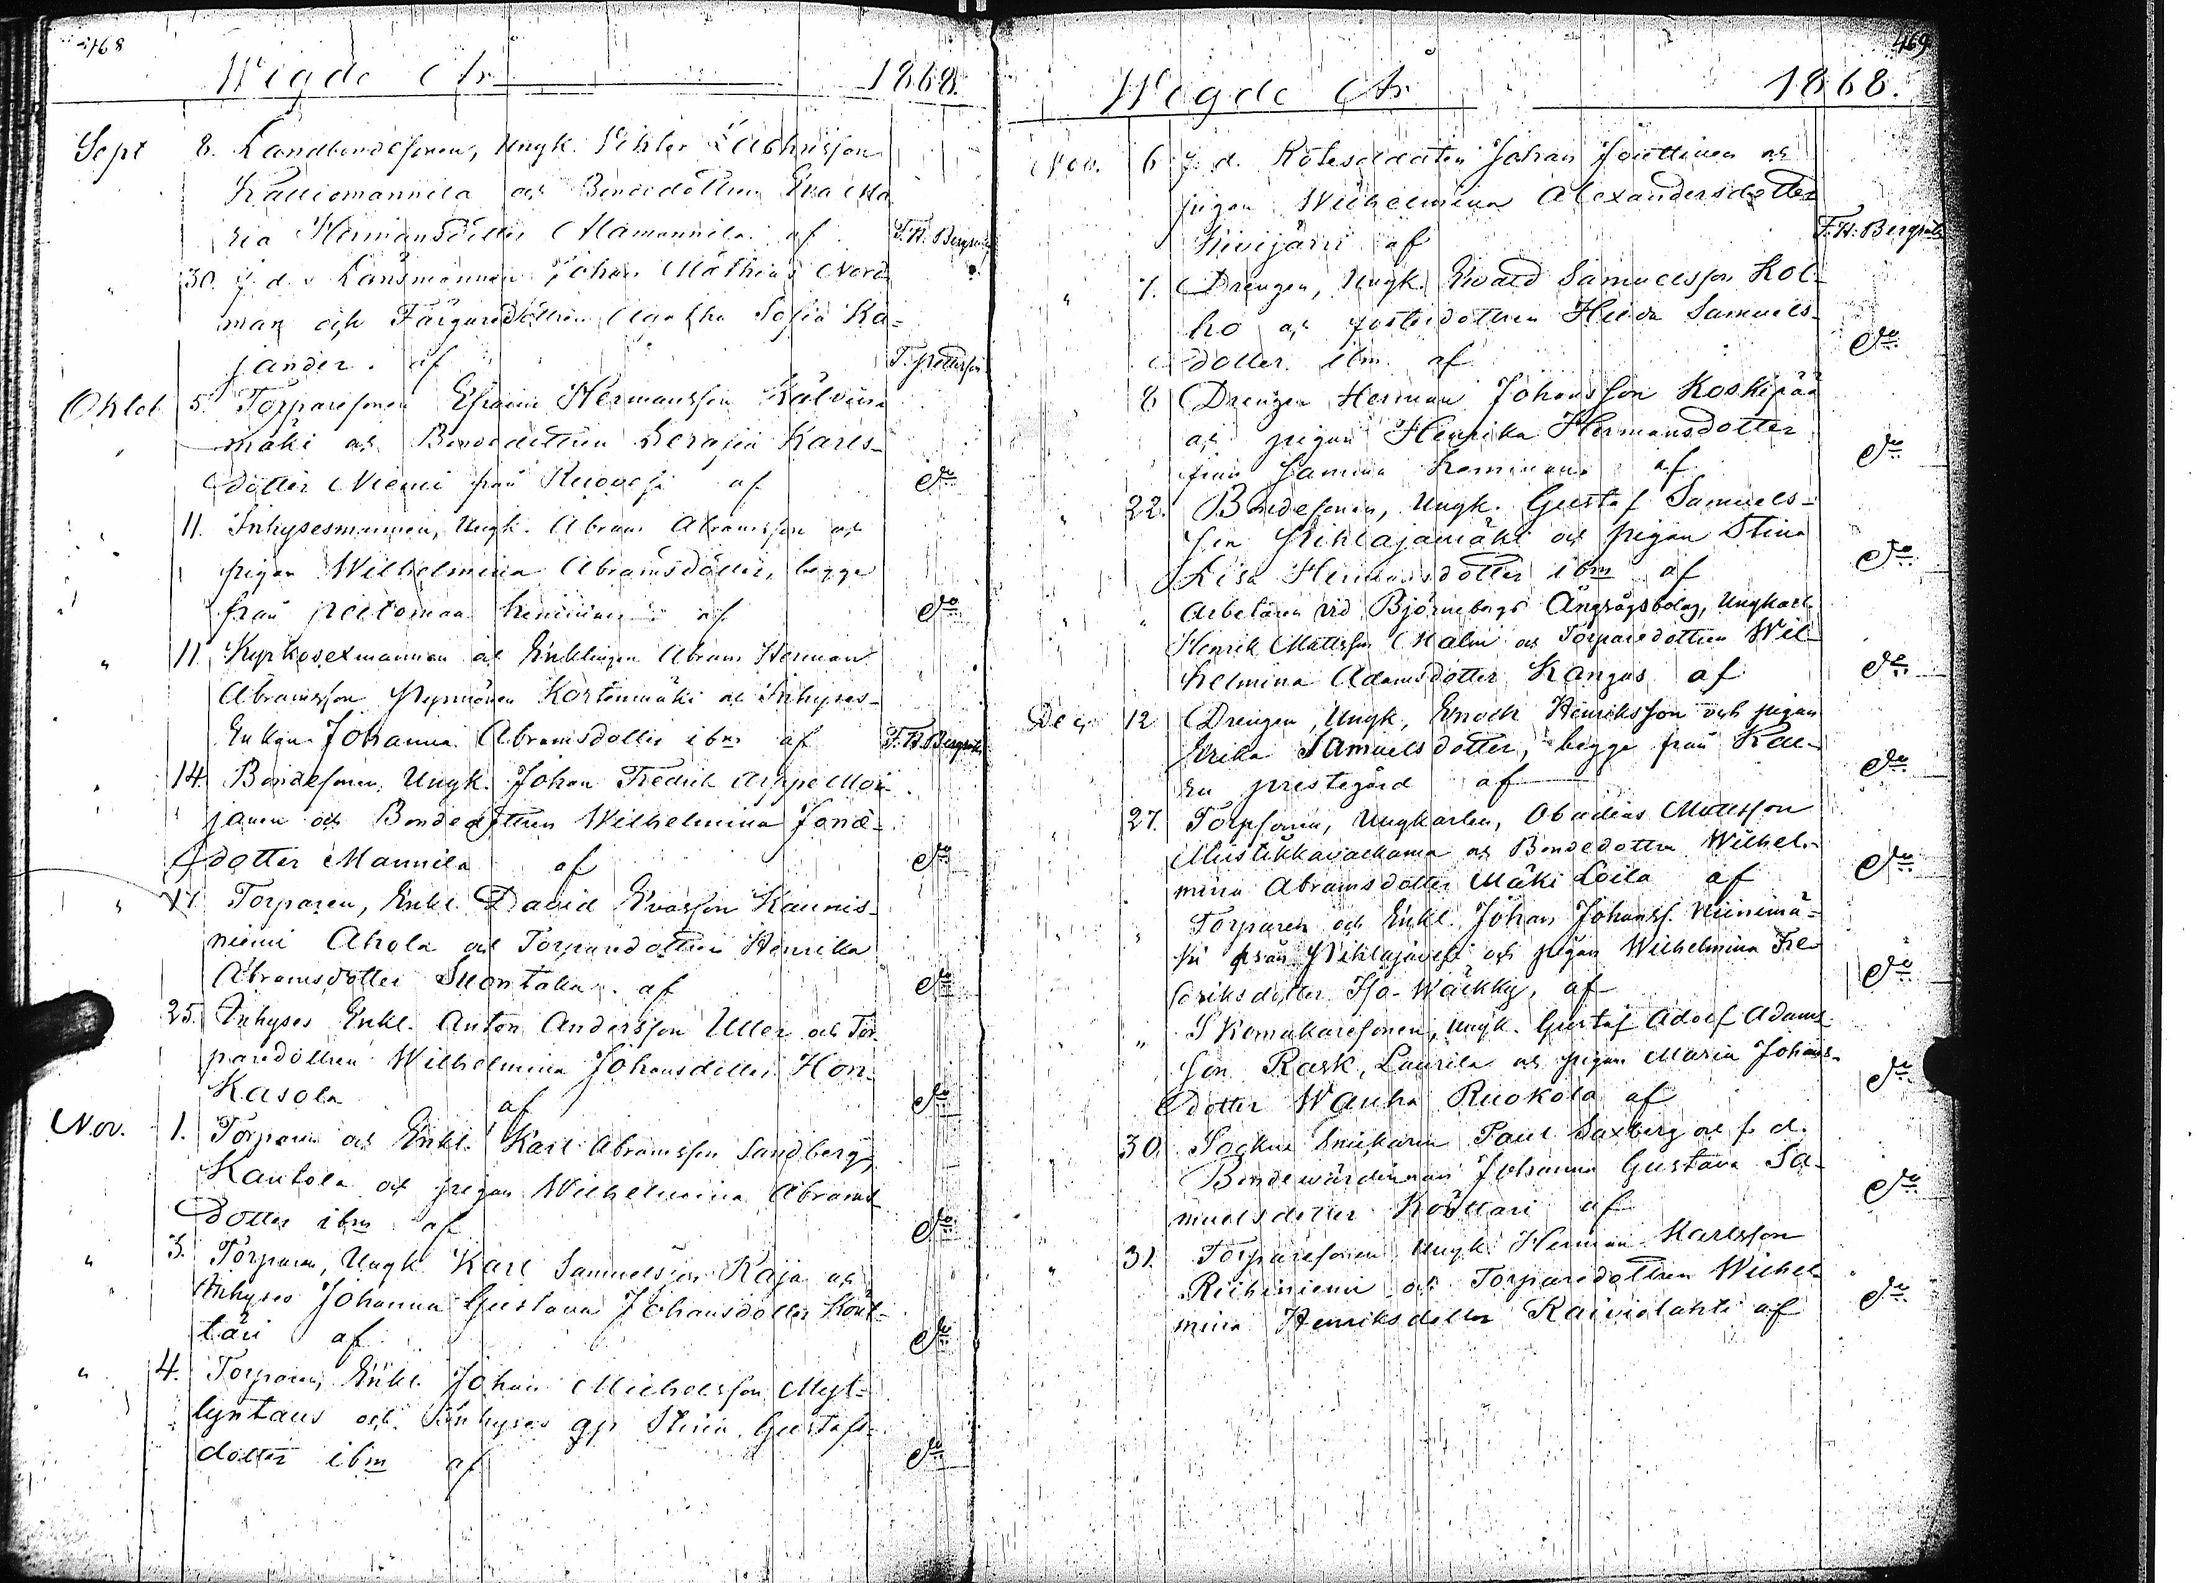 468
Wigde År 1868.
Sept 8. Landbondesonen, Ungk. Zachrisson
Kalliomannila och Bondedottren Eva Ma
ria Hermansdotter Mamannila af F. H. Bergroth
" 30. f. d. Länsmannen Johan Mathias Nord
man och Färgaredottren Agatha Sofia Ka=
jander. af
Oktob. 5. Torparesonen Efraim Hermansson Kälviän
mäki och Bondedottren Serafia Karls-
dotter Niemi från Ruovesi af Do
" 11. Inhysesmannen, Ungk. Abram Abramsson och
pigan Wilhelmina Abramsdotter, begge
från hemman af Do
" 11. Kyrkosexmannen och Enklingen Abram Herman
Abramsson Kortenmäki och Inhyses-
Enkan Johanna Abramsdotter ibm af F. H. Bergroth
" 14. Bondesonen, Ungk. Johan Fredrik Arppe Moi-
janen och Bondedottren Wilhelmina Jona-
dotter Mannila af Do
" 17. Torparen, Enkl. David Evasson Kaunis-
niemi Ahola och Torparedottren Henrika
Abramsdotter Suontaka. af Do
25. Inhyses Enkl. Anton Andersson Uller och Tor-
paredottren Wilhelmina Johansdotter Hon-
kasola af Do
Nov. 1. Torparen och Enkl. Karl Abramsson Sandberg,
Kantola och pigan Wilhelmina Abrams
dotter ibm af Do
" 3. Torparen, Ungk. Karl Samuelsson Raja och
Inhyses Johanna Gustava Johansdotter Kött-
täri af Do
" 4. Torparen, Enkl. Johan Michelsson Myl-
lyntaus och Inhyses gp Stina Gustafs-
dotter ibm af Do
469
Wigde År 1868.
Nov. 6 f. d. Rotesoldaten Johan Jouttinen och
pigan Wilhelmina Alexandersdotter
Kivijärvi af F. H. Bergroth
" 7. Drengen, Ungk. Evald Samuelsson Kol-
ho och fosterdottren Heeda Samuels-
dotter ibm af Do
" 8 Drengen Herman Johansson Koskipää
och pigan Henrika Hermansdotter
från samma hemman af Do
" 22. Bondesonen, Ungk. Gustaf Samuels-
son Pihlajamäki och pigan Stina
Lisa Hermansdotter ibm af Do
" " Arbetaren vid Björneborgs Ångsågsbolag, Ungkarl
Henrik Mattsson Malm och Torparedottren Wil-
helmina Adamsdotter Kangas af Do
Dec. 12 Drengen, Ungk, Enoch Henriksson och pigan
Erika Samuelsdotter, begge från
prestegård af Do
" 27. Torpsonen, Ungkarlen, Obadias Mattsson
och Bondedottren Wilhel-
mina Abramsdotter Mäki Loila af Do
" Torparen och Enkl. Johan Johanss. Niinimä-
ki från Pihlajavesi och pigan Wilhelmina Fre
driksdotter Iso-Wäckky, af Do
" Skomakaresonen, Ungk. Gustaf Adolf Adams
son Rask, Laurila och pigan Maria Johans-
dotter Wanha Ruokola af Do
30. Sockne Snickaren Paul Saxberg och f. d.
Bondewärdinnan Johanna Gustava Sa-
muelsdotter Köttari af Do
" 31. Torparesonen Ungk. Herman Karlsson
Riihiniemi och Torparedottren Wilhel
mina Henriksdotter Raiviolahti af Do